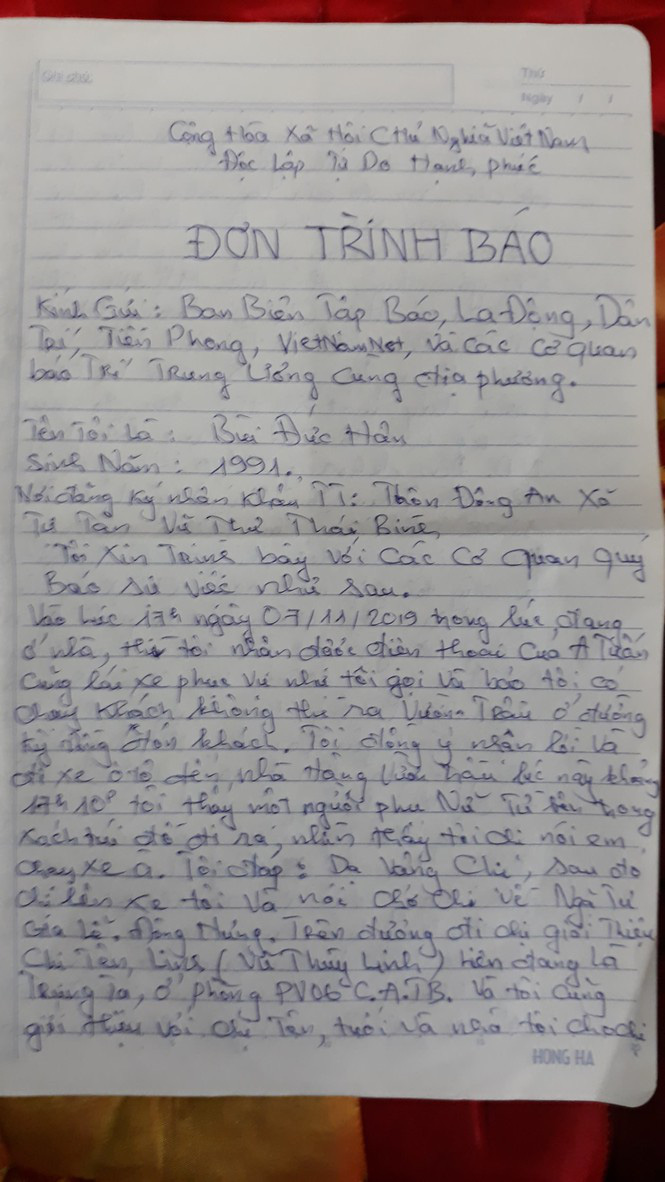 Thứ
Ngày / /
Cộng Hòa Xã Hội Chủ Nghĩa Việt Nam
Độc Lập Tự Do Hạnh phúc
ĐƠN TRÌNH BÁO
Kính Gửi: Ban Biên Tập Báo, La Động, Dân
Trí, Tiền Phong, VietNamNet, và các cơ quan
báo Trí Trung Ương Cung địa phương.
Tên Tôi Là: Bùi Đức Hân
Sinh Năm: 1991.
Nơi đăng ký nhân khẩu TT: Thôn Đông An Xã
Tự Tân Vũ Thư Thái Bình
Tôi Xin Trình bày với các cơ quan quý
Báo sự việc như sau.
Vào lúc 17h ngày 07/11/2019 trong lúc đang
ở nhà, thì tôi nhận được điện thoại của A Tuấn
cũng lái xe phục vụ như tôi gọi và bảo tôi có
chạy khách không thì ra Vườn Trầu ở đường
kỳ đồng đón khách. Tôi đồng ý nhận lời và
đi xe ô tô đến nhà hàng vườn trầu lúc này khoảng
17h10p tôi thấy một người phụ Nữ Từ bên trong
xách túi đồ đi ra, nhìn thấy tôi chị nói em
chạy xe à. Tôi đáp: Dạ vâng Chị, sau đó
chị lên xe tôi và nói chở chị về Ngã Tư
Gia Lễ. Đông Hưng. Trên đường đi chị giới Thiệu
Chị Tên, Linh (Vũ Thùy Linh) hiện đang là
Trung Tá, ở phòng PV06 C.A.TB. Và tôi cũng
giới thiệu với chị Tên, tuổi và nhà tôi cho chị
HONG HA